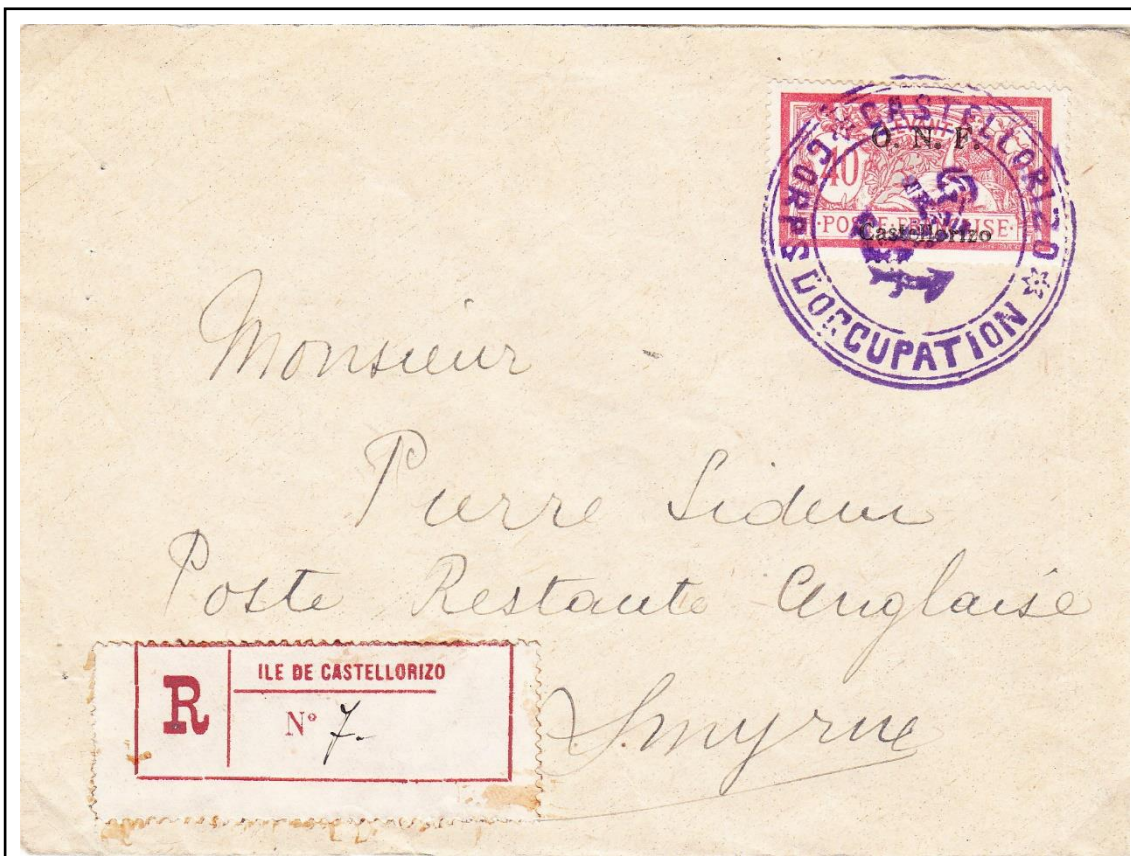 CASTELLORIZO
CORPS D'OCCUPATION
LEVANT
O. N. F.
40
POSTE FRANÇAISE
Castellorizo
Monsieur
Pierre
Poste Restante Anglaise
Smyrne
R
ILE DE CASTELLORIZO
Nº 7.